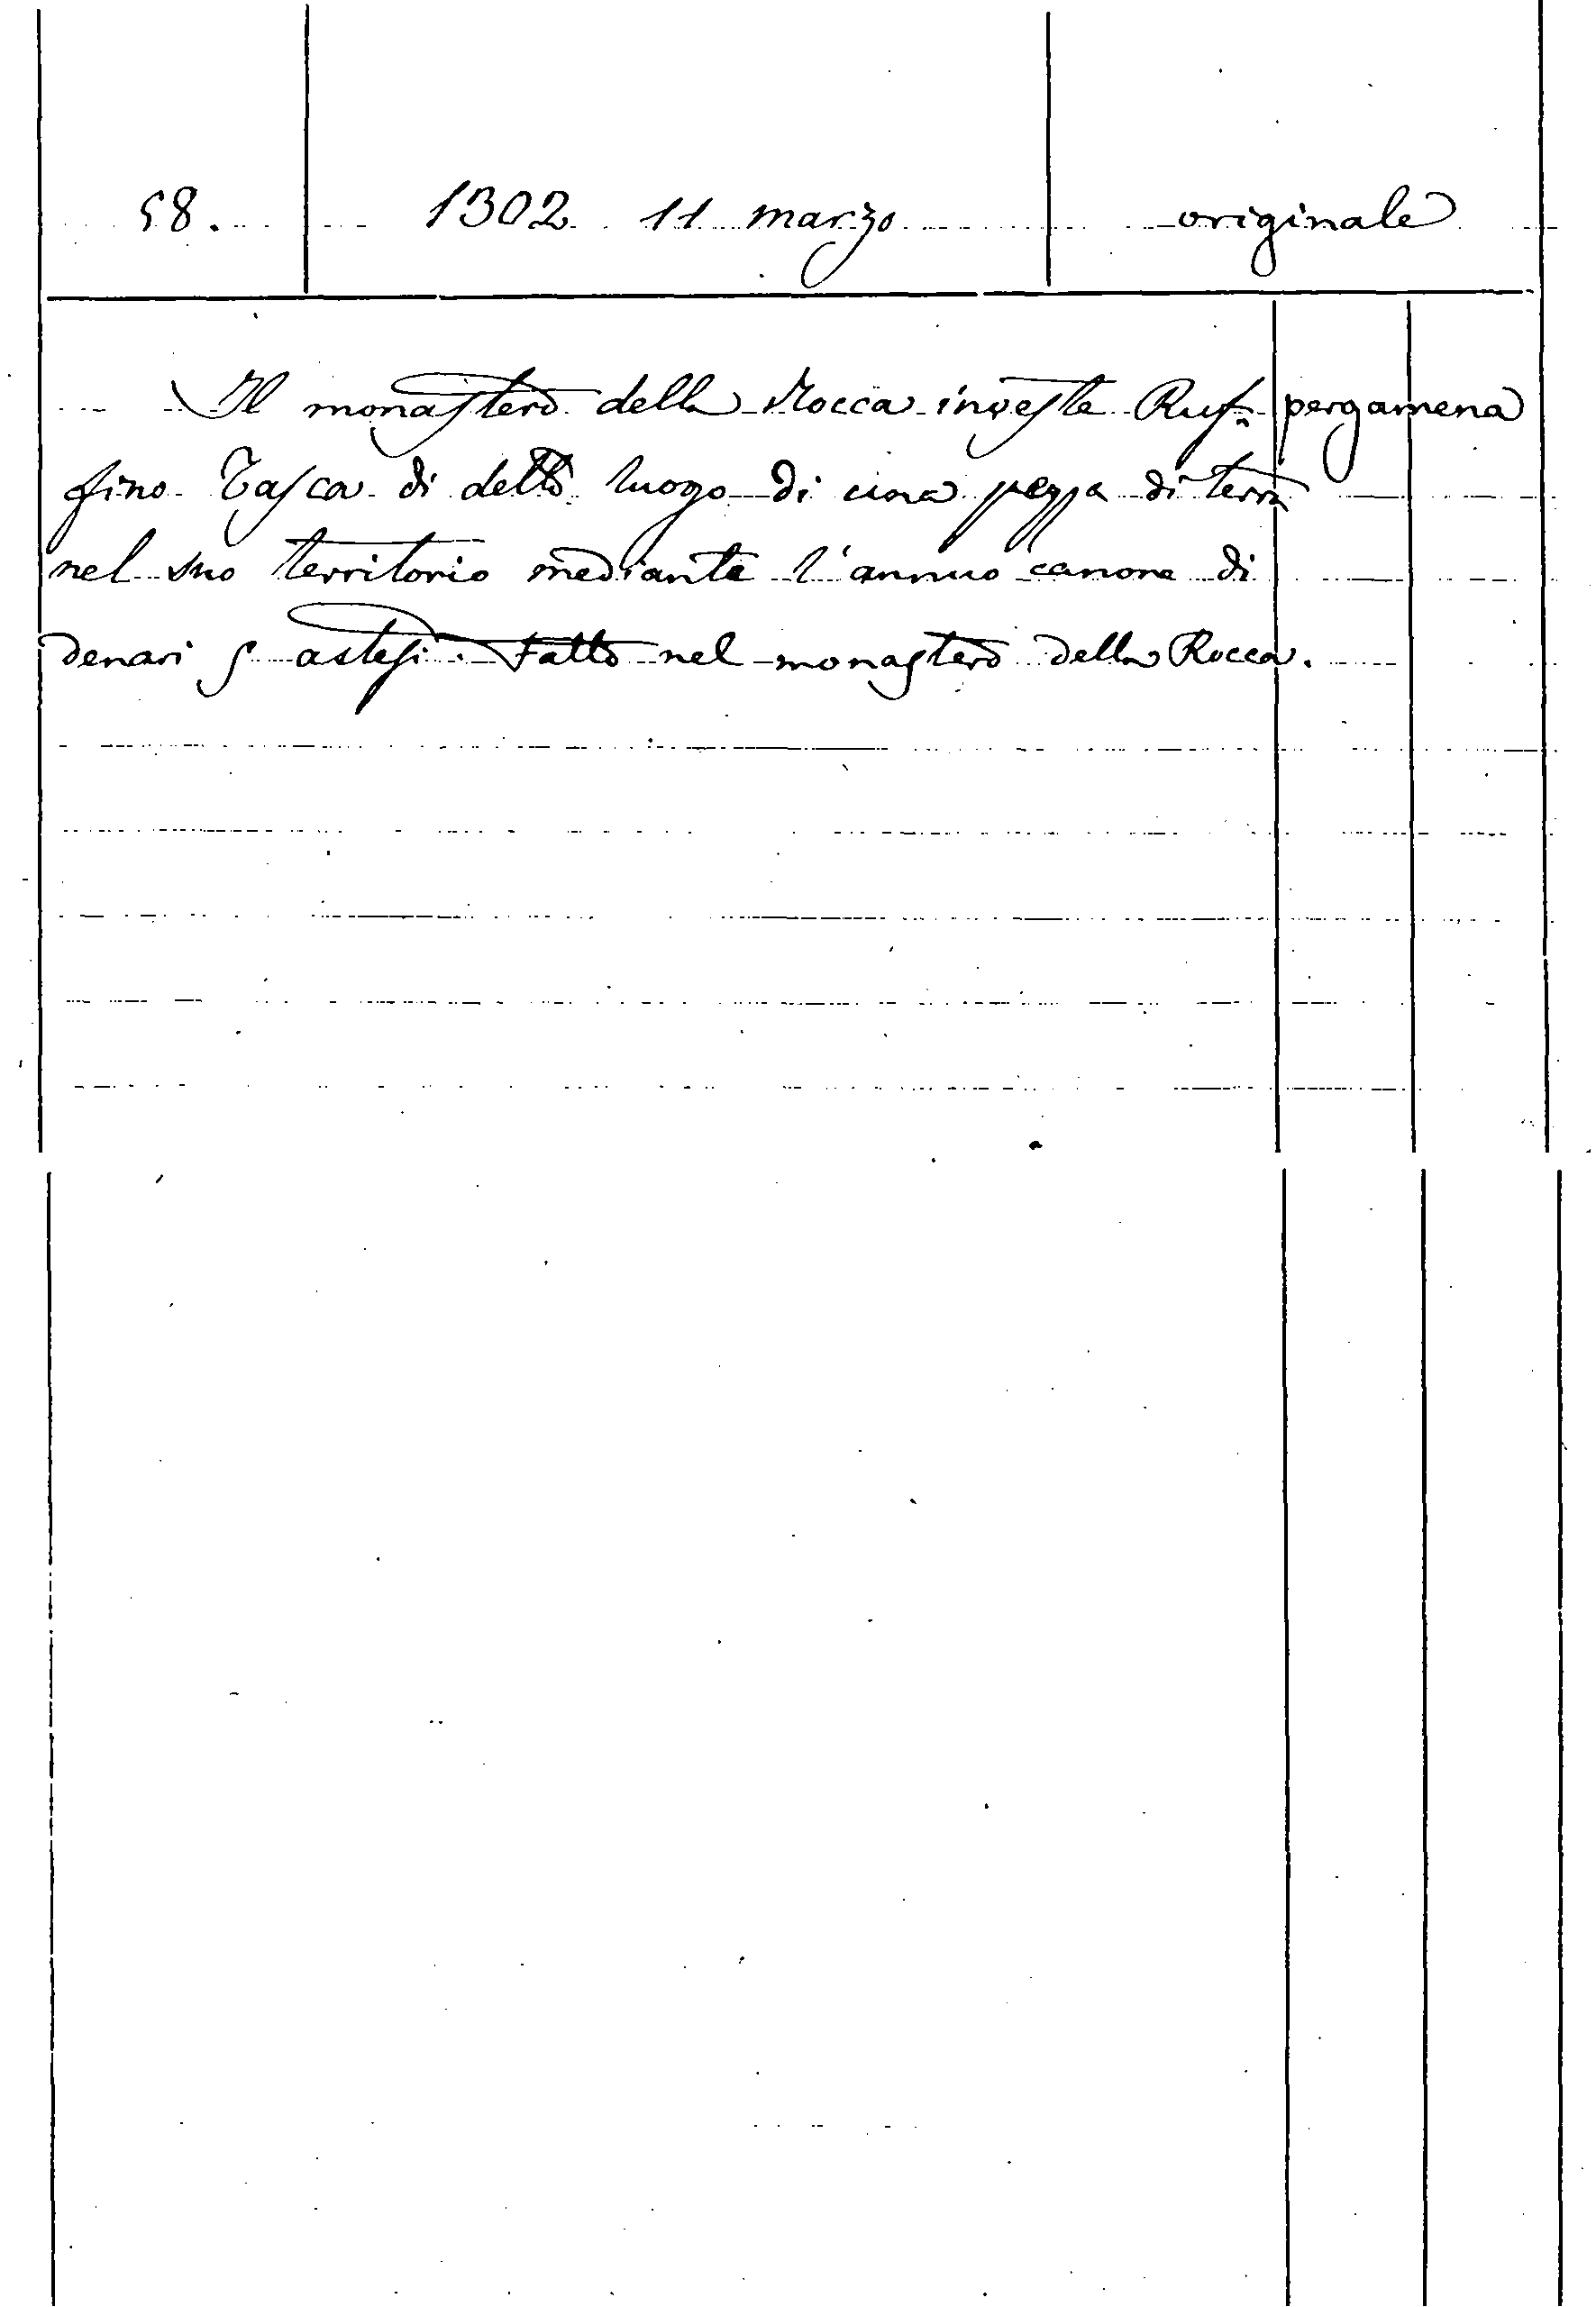 58. 1302 11 marzo originale
Il monastero della Rocca investe Ruf= pergamena
fino Tasca di detto luogo di una pezza di terra
nel suo territorio mediante l'annuo canone di
denari 5 astesi. Fatto nel monastero della Rocca.